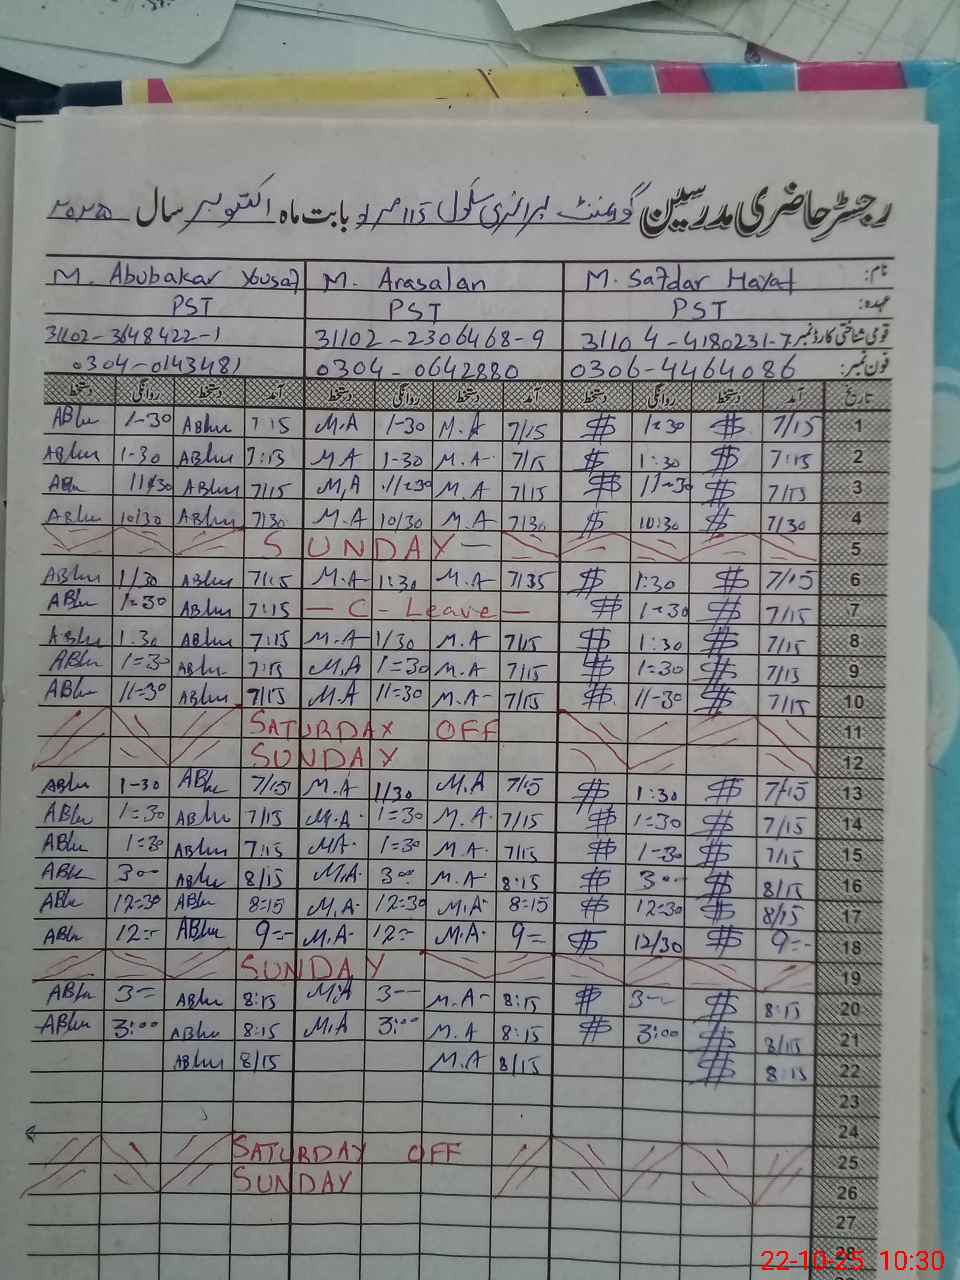 رجسٹر حاضری مدرسین گورنمنٹ پرائمری سکول بابت ماہ اکتوبر سال ۲۰۲۵
M. Abubakar Yousaf M. Arasalan M. Safdar Hayat نام:
PST PST PST عہدہ:
31102-3648422-1 31102-2306468-9 31104-4180231-7 قومی شناختی کارڈ نمبر
0304-0143481 0304-0642880 0306-4464086 فون نمبر:
دستخط روانگی دستخط آمد دستخط روانگی دستخط آمد دستخط روانگی دستخط آمد تاریخ
ABhu 1-30 ABhu 7:15 M.A 1-30 M.A 7/15 $ 1:30 $ 7/15 1
ABhu 1-30 ABhu 7:15 M.A 1-30 M.A. 7/15 $ 1:30 $ 7:15 2
ABhu 11:30 ABhu 7/15 M.A 11:30 M.A 7/15 $ 11-30 $ 7/15 3
ABhu 10/30 ABhu 7/30 M.A 10/30 M.A 7/30 $ 10:30 $ 7/30 4
SUNDAY 5
ABhu 1/30 ABhu 7/15 M.A 1:30 M.A 7/35 $ 1:30 $ 7/15 6
ABhu 1=30 ABhu 7:15 — C - Leave — $ 1=30 $ 7/15 7
ABhu 1.30 ABhu 7:15 M.A 1/30 M.A 7/15 $ 1:30 $ 7/15 8
ABhu 1=30 ABhu 7:15 M.A 1=30 M.A 7/15 $ 1=30 $ 7/15 9
ABhu 11=30 ABhu 7/15 M.A 11=30 M.A- 7/15 $ 11-30 $ 7/15 10
SATURDAY OFF 11
SUNDAY 12
ABhu 1-30 ABhu 7/15 M.A 1/30 M.A 7/15 $ 1:30 $ 7/15 13
ABhu 1=30 ABhu 7/15 M.A. 1=30 M.A. 7/15 $ 1=30 $ 7/15 14
ABhu 1=30 ABhu 7:15 MA. 1=30 M.A. 7/15 $ 1-30 $ 7/15 15
ABhu 3°° ABhu 8/15 M.A. 3°° M.A. 8:15 $ 3°° $ 8/15 16
ABhu 12=30 ABhu 8:15 M.A. 12=30 M.A. 8=15 $ 12=30 $ 8/15 17
ABhu 12=- ABhu 9=- M.A. 12=- M.A. 9= $ 12/30 $ 9=- 18
SUNDAY 19
ABhu 3-- ABhu 8:15 M.A 3-- M.A- 8:15 $ 3-- $ 8:15 20
ABhu 3:00 ABhu 8:15 M.A 3:00 M.A 8:15 $ 3:00 $ 8/15 21
ABhu 8/15 M.A 8/15 $ 8:15 22
23
24
SATURDAY OFF 25
SUNDAY 26
27
28
22-10-25 10:30